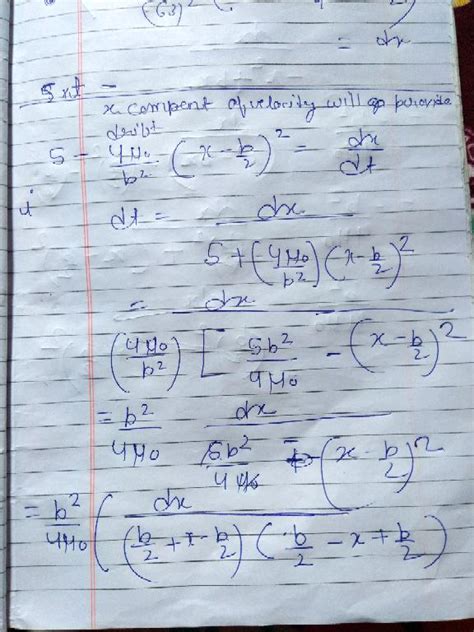 (63)²  2
= dx
5 xt -
x compent of velocity will go provide
drift
5 - 4μ₀/b² (x - b/2)² = dx/dt
dt = dx / (5 + (-4μ₀/b²)(x - b/2)²)
= dx / ((4μ₀/b²) [5b²/4μ₀ - (x - b/2)²
= b²/4μ₀ dx / (5b²/4μ₀ - (x - b/2)²)
= b²/4μ₀ ( dx / (b/2 + x - b/2) (b/2 - x + b/2) )